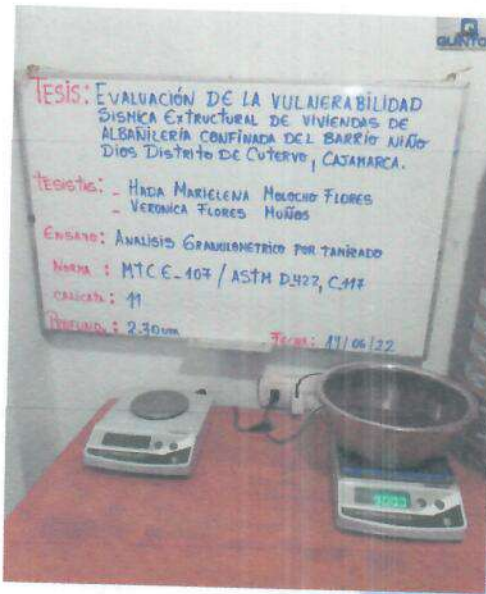 QUINTO
TESIS: EVALUACIÓN DE LA VULNERABILIDAD
SISMICA EXTRUCTURAL DE VIVIENDAS DE
ALBAÑILERÍA CONFINADA DEL BARRIO NIÑO
DIOS DISTRITO DE CUTERVO, CAJAMARCA.
TESISTAS: - HADA MARIELENA MOLOCHO FLORES
- VERONICA FLORES MUÑOS
ENSAYO: ANALISIS GRANULOMETRICO POR TAMIZADO
NORMA : MTC E-107 / ASTM D422, C.117
CALICATA: 11
PROFUND.: 2.70 FECHA: 17/06/22